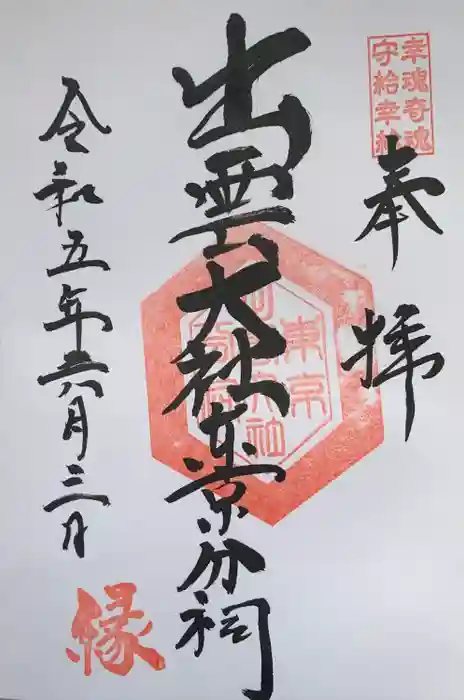 幸魂奇魂
守給幸給
奉拝
出雲大社東京分祠
東京
令和五年六月三日
縁